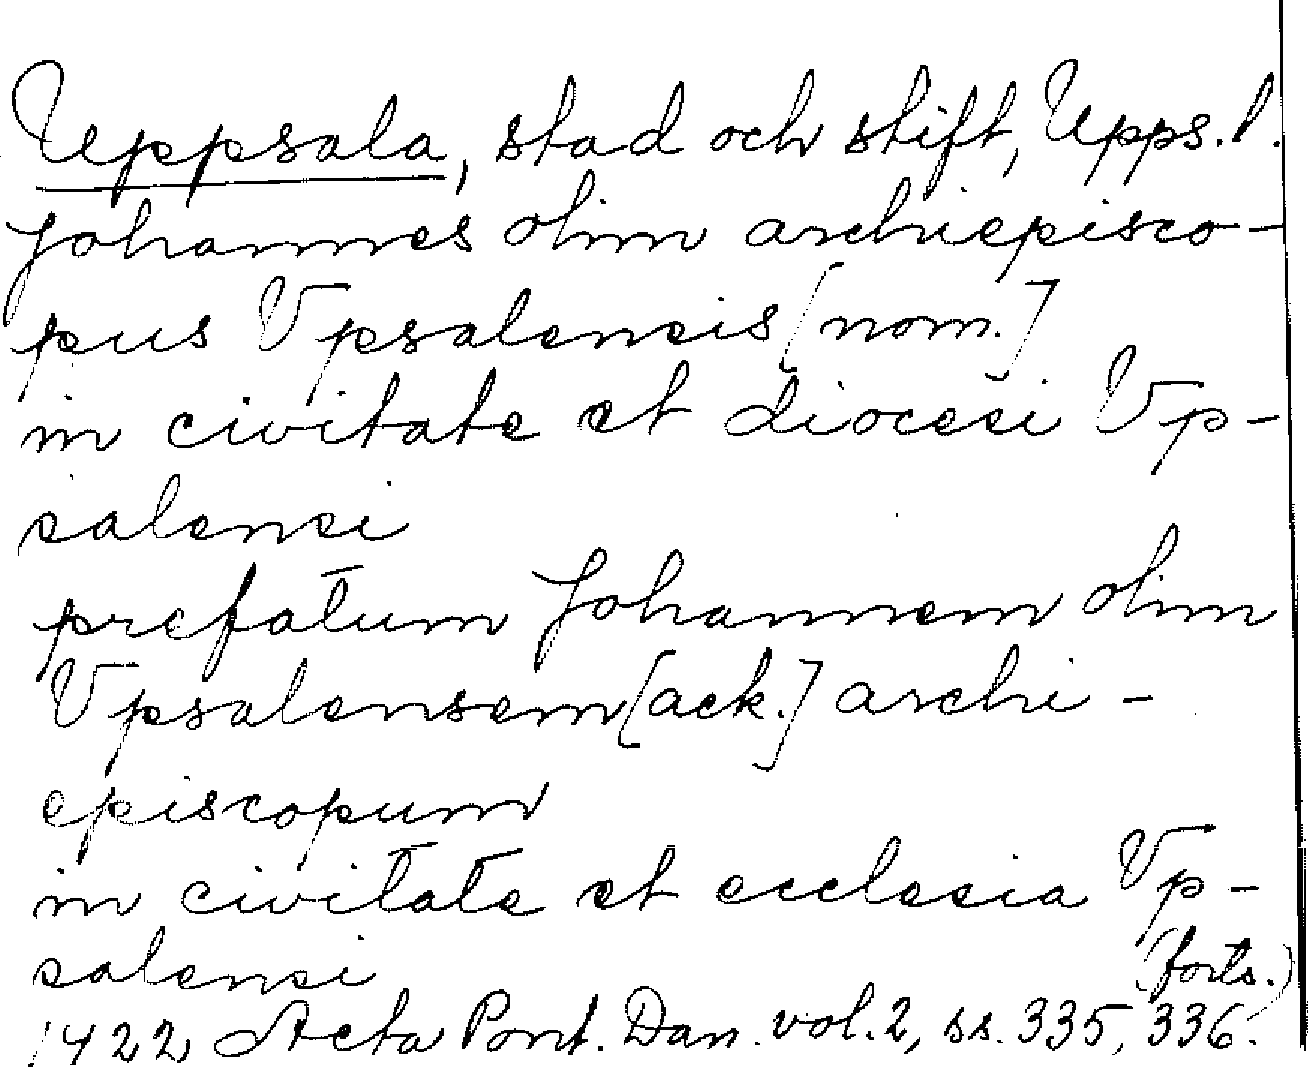 Uppsala, stad och stift, Upps. l.
Johannes olim archiepisco-
pus Vpsalensis [nom.]
in civitate et diocesi Vp-
salensi
prefatum Johannem olim
Vpsalensem [ack.] archi-
episcopum
in civitate et ecclesia Vp-
salensi (forts.)
1422 Acta Pont. Dan. vol. 2, ss. 335, 336.